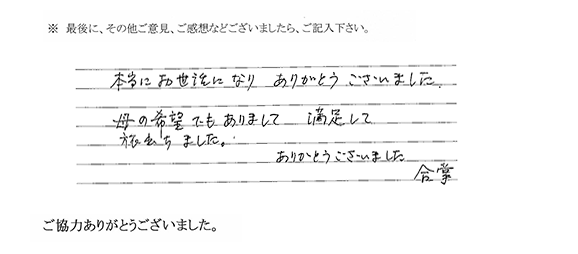 ※ 最後に、その他ご意見、ご感想などございましたら、ご記入下さい。
本当にお世話になり ありがとうございました。
母の希望でもありまして 満足して
旅立ちました。
ありがとうございました
合掌
ご協力ありがとうございました。